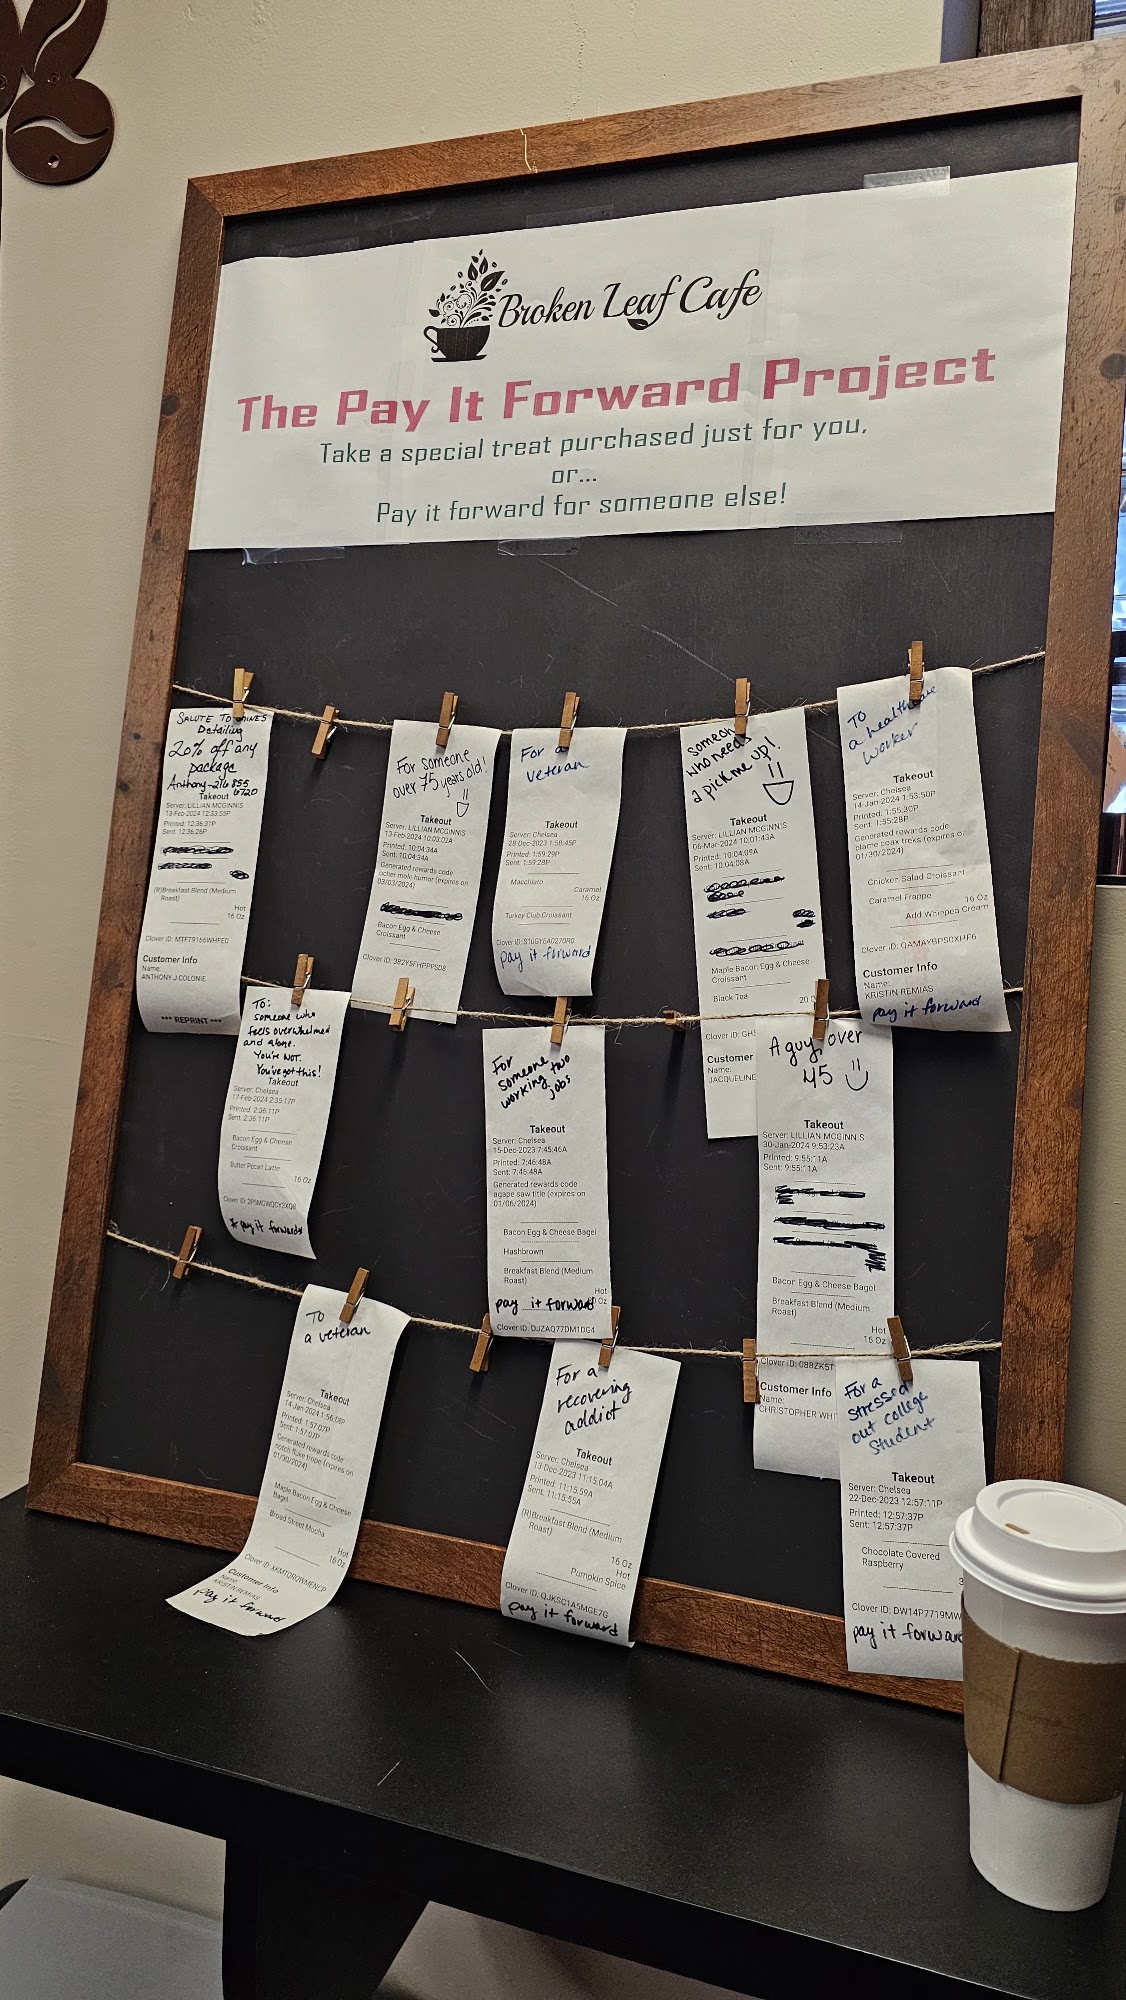 Broken Leaf Cafe
The Pay It Forward Project
Take a special treat purchased just for you,
or...
Pay it forward for someone else!
SALUTE TO
Detailing
20% off any
package
Anthony-216 855
6720
Takeout
Server: LILLIAN MCGINNIS
13-Feb-2024 12:33:55P
Printed: 12:36:31P
Sent: 12:36:26P
(R)Breakfast Blend (Medium
Roast)
Hot
16 Oz
Clover ID: MTFT9166WHFE0
Customer Info
Name:
ANTHONY J COLONIE
*** REPRINT ***
For someone
over 75 years old!
Takeout
Server: LILLIAN MCGINNIS
13-Feb-2024 10:03:02A
Printed: 10:04:34A
Sent: 10:04:34A
Generated rewards code
ocher molo humor (expires on
03/03/2024)
Bacon Egg & Cheese
Croissant
Clover ID: 382Y5FHPPFSD8
For a
veteran
Takeout
Server: Chelsea
28-Dec-2023 1:58:45P
Printed: 1:59:29P
Sent: 1:59:28P
Macchiato
Caramel
16 Oz
Turkey Club Croissant
Clover ID: S10GY6A0270R0
pay it forward
someone
who needs
a pick me up!
Takeout
Server: LILLIAN MCGINNIS
06-Mar-2024 10:01:43A
Printed: 10:04:09A
Sent: 10:04:08A
Maple Bacon Egg & Cheese
Croissant
Black Tea
20
Clover ID: GH
Customer
Name:
JACQUELINE
To
a healthcare
worker
Takeout
Server: Chelsea
14-Jan-2024 1:53:50P
Printed: 1:55:30P
Sent: 1:55:28P
Generated rewards code
blame coax treks (expires on
01/30/2024)
Chicken Salad Croissant
Caramel Frappe
16 Oz
Add Whipped Cream
Clover ID: QAMAYBPS0XHF6
Customer Info
Name:
KRISTIN REMIAS
pay it forward
To:
someone who
feels overwhelmed
and alone.
You're NOT.
You've got this!
Takeout
Server: Chelsea
17-Feb-2024 2:35:17P
Printed: 2:36:11P
Sent: 2:36:11P
Bacon Egg & Cheese
Croissant
Butter Pecan Latte
16 Oz
Clover ID: 2P5MGWQCY3XQ8
pay it forward
For
someone
working two
jobs
Takeout
Server: Chelsea
15-Dec-2023 7:45:46A
Printed: 7:46:48A
Sent: 7:46:48A
Generated rewards code
agape saw title (expires on
01/06/2024)
Bacon Egg & Cheese Bagel
Hashbrown
Breakfast Blend (Medium
Roast)
Hot
Oz
pay it forward
Clover ID: DJZAQ77DM1DG4
A guy over
45
Takeout
Server: LILLIAN MCGINNIS
30-Jan-2024 9:53:23A
Printed: 9:55:11A
Sent: 9:55:11A
Bacon Egg & Cheese Bagel
Breakfast Blend (Medium
Roast)
Hot
16 Oz
Clover ID: 088ZK5T
Customer Info
Name:
CHRISTOPHER WHI
To
a veteran
Takeout
Server: Chelsea
14-Jan-2024 1:56:08P
Printed: 1:57:07P
Sent: 1:57:07P
Generated rewards code
notch fluke hope (expires on
01/30/2024)
Maple Bacon Egg & Cheese
Bagel
Broad Street Mocha
Hot
16 Oz
Clover ID:
Customer Info
Name:
KRISTIN REMIAS
pay it forward
For a
recovering
addict
Takeout
Server: Chelsea
13-Dec-2023 11:15:04A
Printed: 11:15:59A
Sent: 11:15:55A
(R)Breakfast Blend (Medium
Roast)
16 Oz
Hot
Pumpkin Spice
Clover ID: QJKSC1A5MGE7G
pay it forward
For a
stressed
out college
student
Takeout
Server: Chelsea
22-Dec-2023 12:57:11P
Printed: 12:57:37P
Sent: 12:57:37P
Chocolate Covered
Raspberry
3
Clover ID: DW14P7719MW
pay it forward